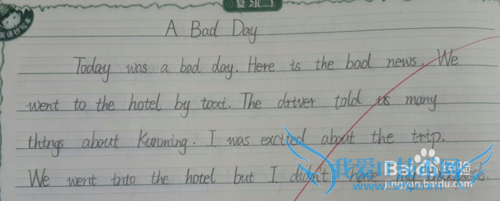 A Bad Day
Today was a bad day. Here is the bad news. We
went to the hotel by taxi. The driver told us many
things about Kunming. I was excited about the trip.
We went into the hotel but I didn't have my
Baidu 经验
jingyan.baidu.com